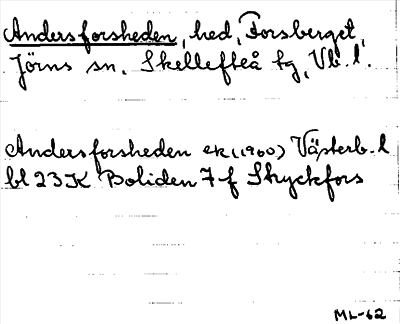 Andersforsheden, hed, Forsberget,
Jörns sn, Skellefteå tg, Vb. l.
Andersforsheden ek (1960) Västerb. l
bl 23K Boliden 7 f Stryckfors
ML-62